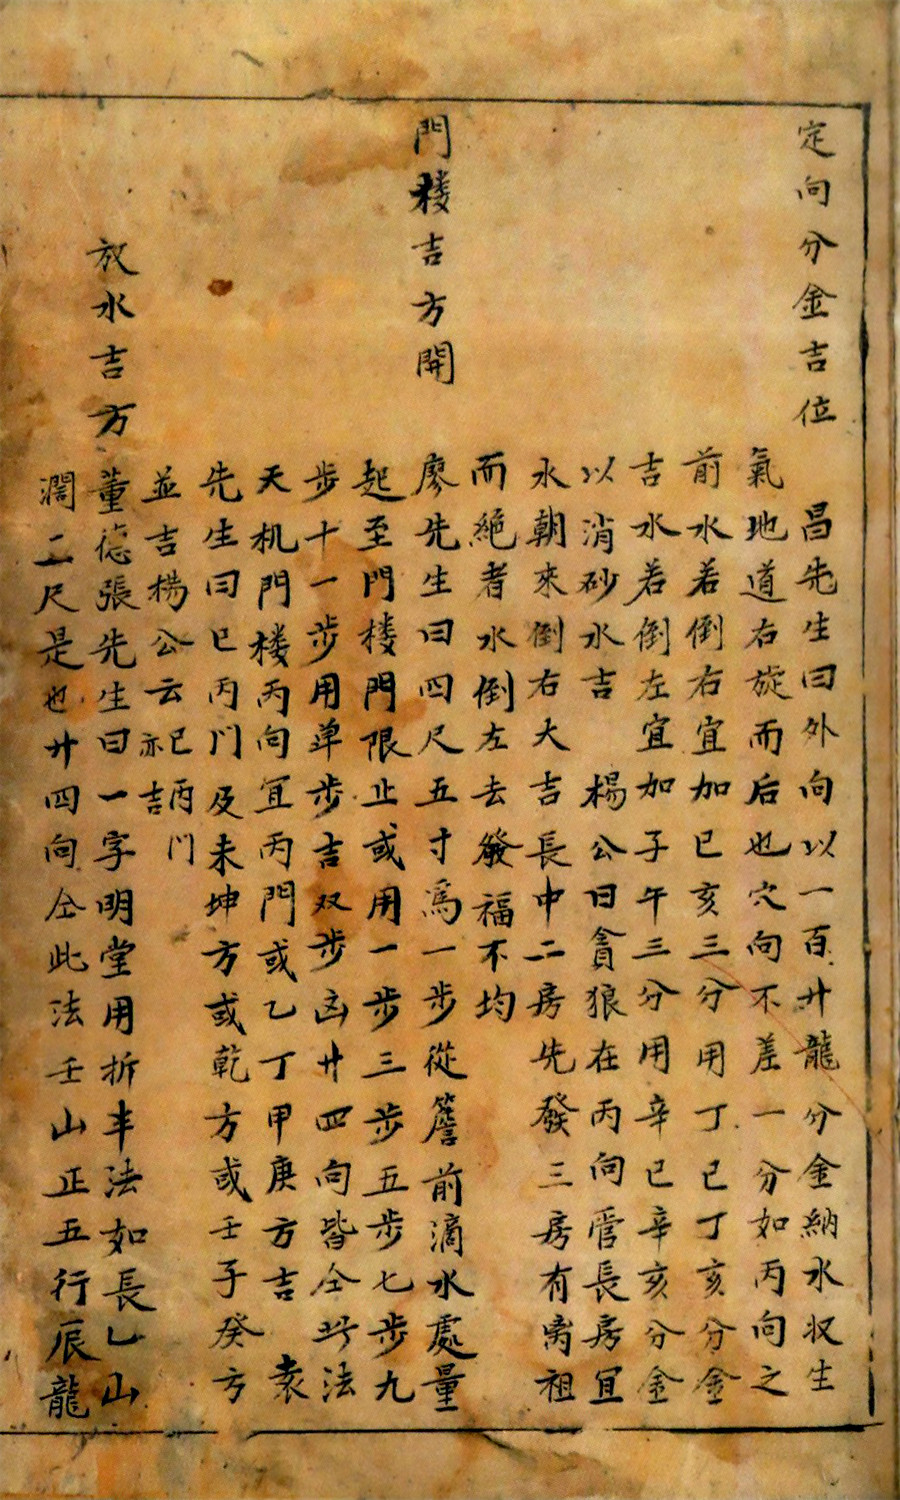 定向分金吉位 昌先生曰外向以一百廾龍分金納水収生
氣地道右旋而后也穴向不差一分如丙向之
前水若倒右宜加巳亥三分用丁巳丁亥分金
吉水若倒左宜加子午三分用辛巳辛亥分金
以消砂水吉 楊公曰貪狼在丙向管長房宜
水朝來倒右大吉長中二房先發三房有离祖
而絕者水倒左去發福不均
門楼吉方開 廖先生曰四尺五寸為一步從簷前滴水處量
起至門楼門限止或用一步三步五步七步九
步十一步用单步吉双步凶廾四向皆仝此法
天机門楼丙向宜丙門或乙丁甲庚方吉 袁
先生曰巳丙门及未坤方或乾方或壬子癸方
並吉楊公云巳丙门亦吉
放水吉方 董德張先生曰一字明堂用折半法如長乙山
濶二尺是也廾四向仝此法壬山正五行辰龍